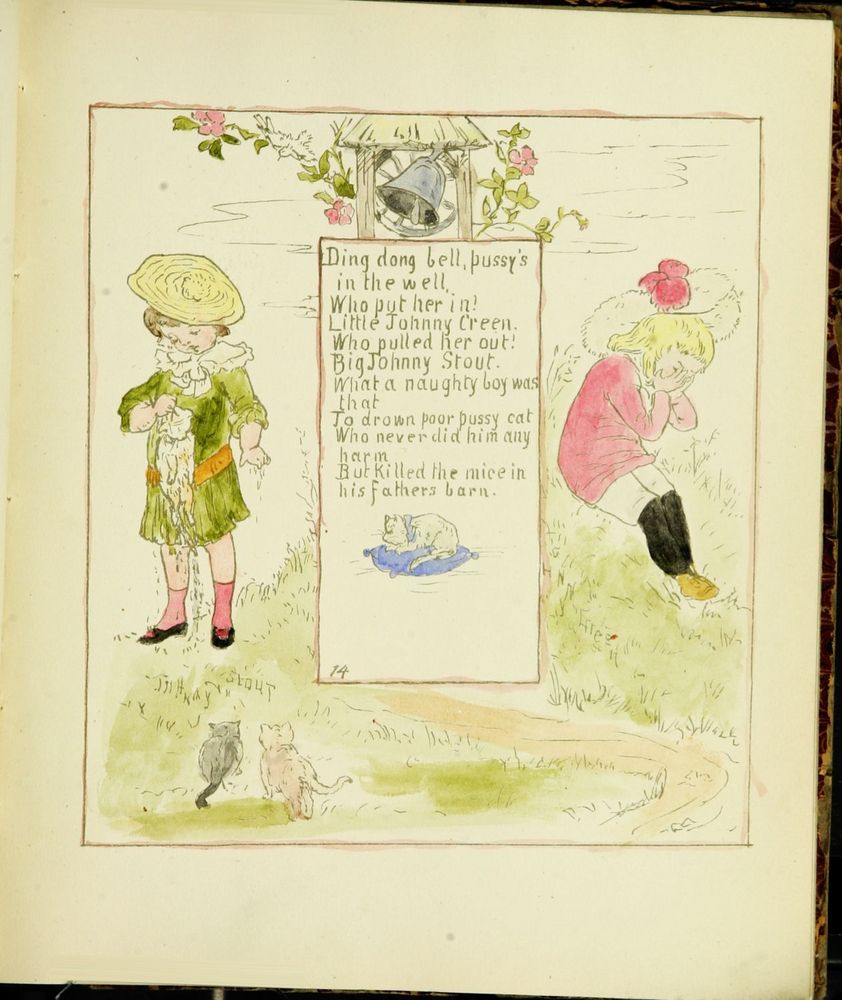 Ding dong bell, pussy's
in the well,
Who put her in!
Little Johnny Creen.
Who pulled her out!
Big Johnny Stout.
What a naughty boy was
that
To drown poor pussy cat
Who never did him any
harm
But Killed the mice in
his fathers barn.
14
STOUT